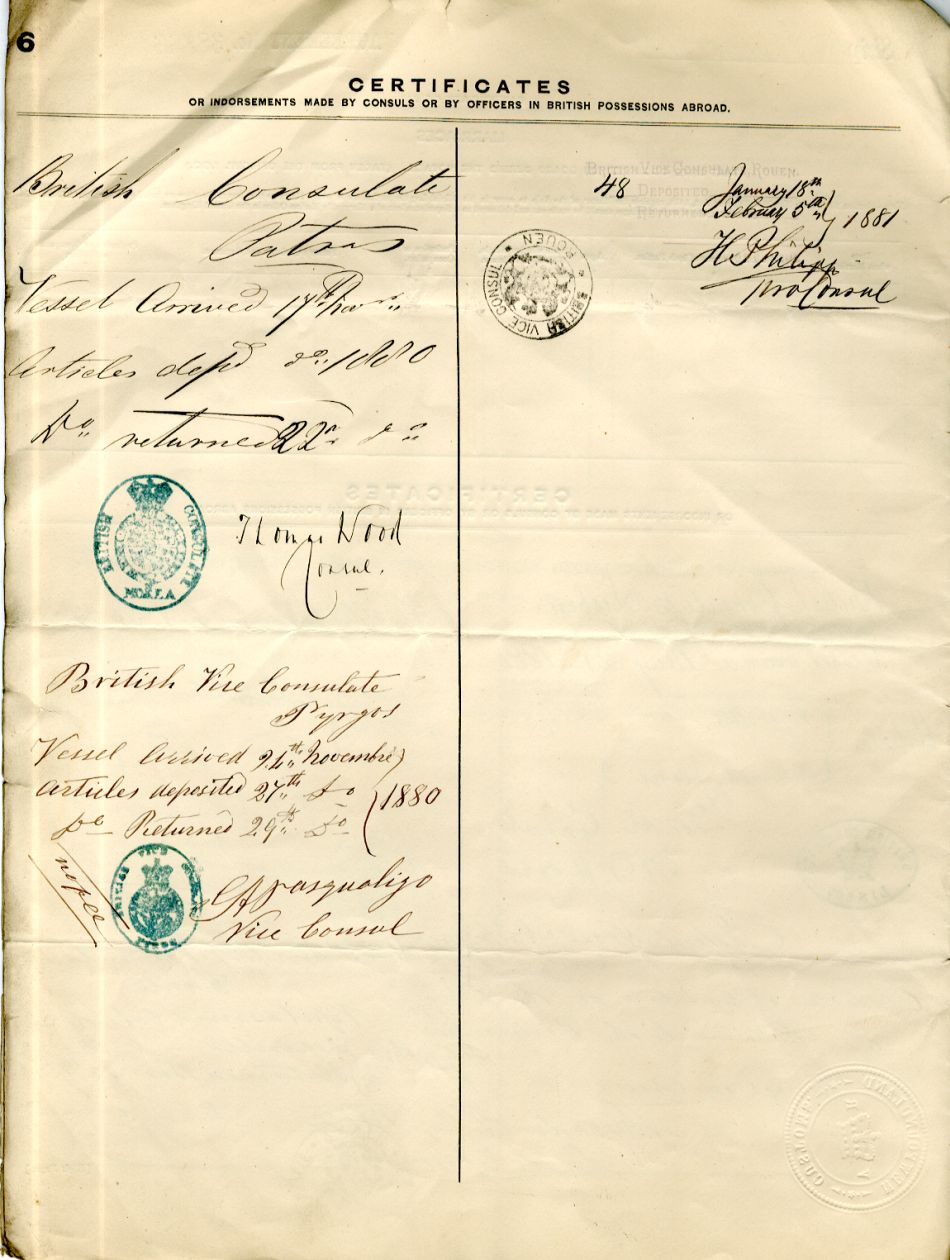 6
CERTIFICATES
OR INDORSEMENTS MADE BY CONSULS OR BY OFFICERS IN BRITISH POSSESSIONS ABROAD.
British Consulate
Patras
Vessel Arrived 17th
Articles depd do 1880
Do returned 22 do
BRITISH CONSULATE
Thomas Wood
Consul.
British Vice Consulate
Pyrgos
Vessel arrived 24th Novembre
Articles deposited 27th Do
Do Returned 29th Do
1880
no fee
BRITISH VICE
G A Pasqualigo
Vice Consul
BRITISH VICE CONSULATE, ROUEN.
48 DEPOSITED January 18th
RETURNED February 5th
1881
H Philipp
Pro Consul
BRITISH VICE CONSUL * ROUEN *
CUSTOMS NEWFOUNDLAND